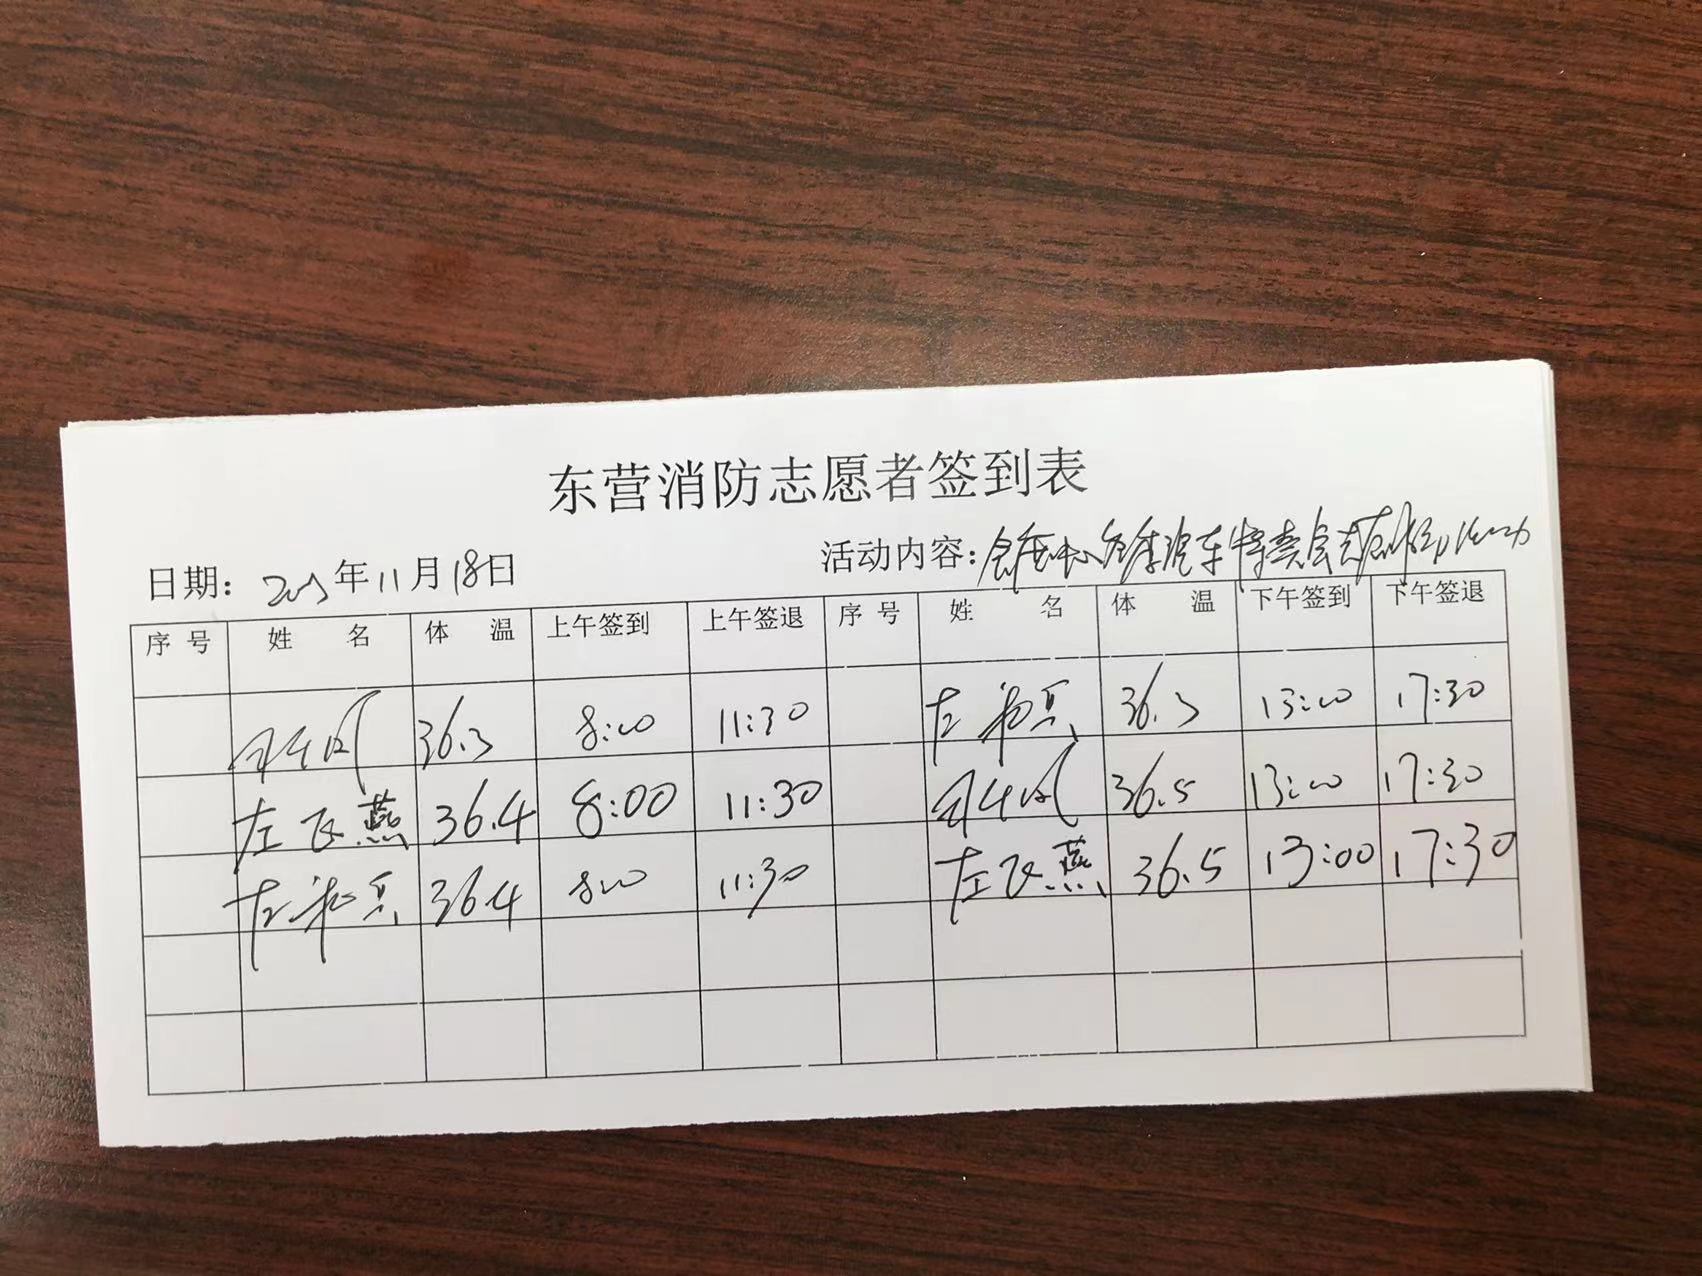 东营消防志愿者签到表
日期: 年11月18日 活动内容: 会展中心冬季汽车特卖会志愿
序号 姓名 体温 上午签到 上午签退 序号 姓名 体温 下午签到 下午签退
36.3 8:00 11:30 左 兵 36.3 13:00 17:30
左飞燕 36.4 8:00 11:30 36.5 13:00 17:30
左 兵 36.4 8:00 11:30 左飞燕 36.5 13:00 17:30